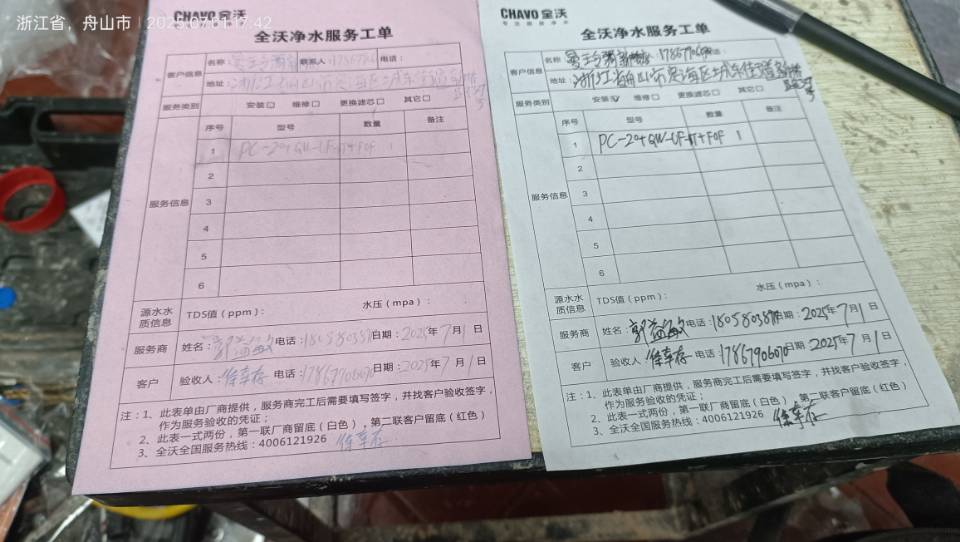 浙江省，舟山市 | 2025.07.01 17:42
CHAVO 全沃
全沃净水服务工单
客户信息 名称 联系人 电话：
地址：浙江省舟山市
服务类别 安装☑ 维修☐ 更换滤芯☐ 其它☐
服务信息 序号 型号 数量 备注
1 1
2
3
4
5
6
源水水质信息 TDS值（ppm）： 水压（mpa）：
服务商 姓名： 电话： 日期：2025年7月1日
客户 验收人：徐幸存 电话：17867906070 日期：2025年7月1日
注：1、此表单由厂商提供，服务商完工后需要填写签字，并找客户验收签字，
作为服务验收的凭证；
2、此表一式两份，第一联厂商留底（白色），第二联客户留底（红色）
3、全沃全国服务热线：4006121926 徐幸存
CHAVO 全沃
全沃净水服务工单
客户信息 名称 17867906070
地址：浙江省舟山市 海区城东街道
服务类别 安装☑ 维修☐ 更换滤芯☐ 其它☐
服务信息 序号 型号 数量 备注
1 1
2
3
4
5
6
源水水质信息 TDS值（ppm）： 水压（mpa）：
服务商 姓名： 电话： 日期：2025年7月1日
客户 验收人：徐幸存 电话：17867906070 日期：2025年7月1日
注：1、此表单由厂商提供，服务商完工后需要填写签字，并找客户验收签字，
作为服务验收的凭证；
2、此表一式两份，第一联厂商留底（白色），第二联客户留底（红色）
3、全沃全国服务热线：4006121926 徐幸存